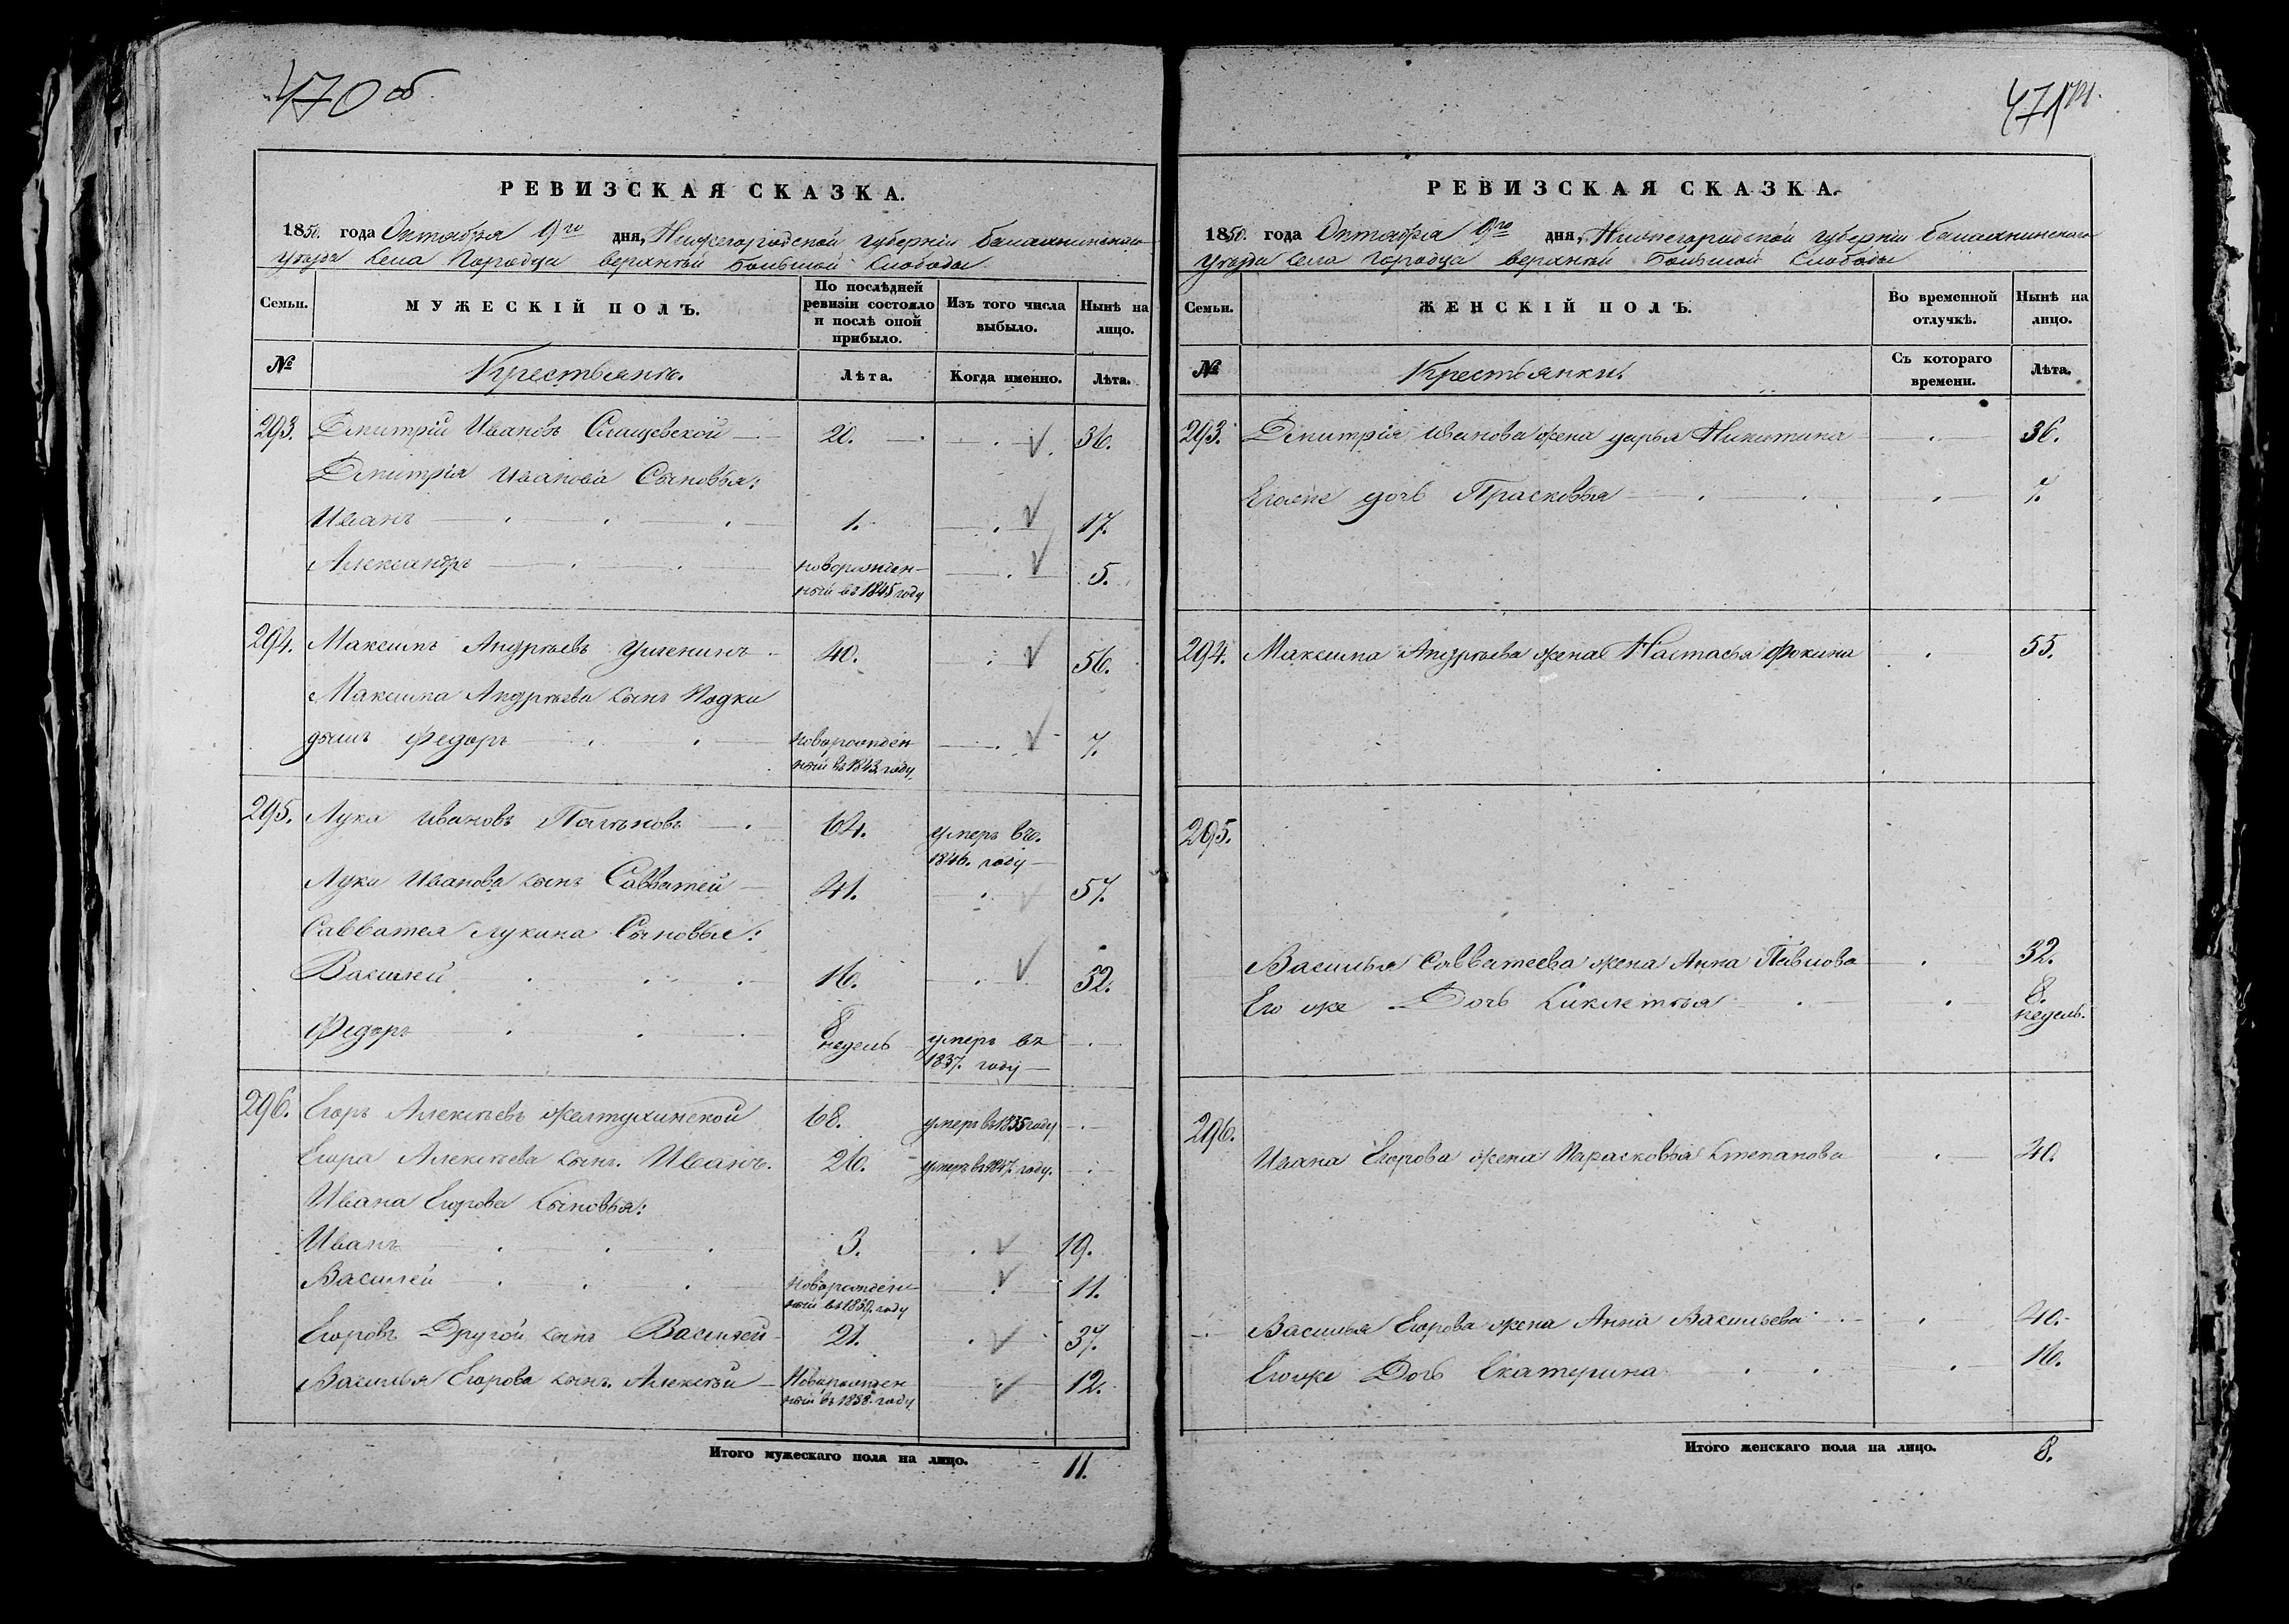 470 об
РЕВИЗСКАЯ СКАЗКА.
1850. года Октября 9го дня, Нижегородской губерніи Балахнинскаго
уезда села Городца верхней большой слободы
Семьи.
МУЖЕСКІЙ ПОЛЪ.
По послѣдней ревизіи состояло и послѣ оной прибыло.
Изъ того числа выбыло.
Нынѣ на лицо.
№
Крестьянъ.
Лѣта.
Когда именно.
Лѣта.
293. Дмитрій Ивановъ 20. 36.
Дмитрія Иванова Сыновья:
Иванъ 1. 17.
Александръ новорожден-
ный въ 1845 году 5.
294. Максимъ Андреевъ 40. 56.
Максима Андреева сынъ Подки
дышъ Федоръ новорожден
ный въ 1843 году 7.
295. Лука Ивановъ 64. умеръ въ
1846. году
Луки Иванова сынъ Савватей 41. 57.
Савватея Лукина Сыновья:
Василей 16. 32.
Федоръ 8 недель умеръ въ
1837. году
296. Егоръ Алексеевъ Желтухинской 68. умеръ въ 1835 году
Егора Алексеева сынъ Иванъ. 26. умеръ въ 1847 году.
Ивана Егорова Сыновья:
Иванъ 3. 19.
Василей новорожден-
ный въ 1839. году 11.
Егоровъ Другой сынъ Василей 21. 37.
Василья Егорова сынъ Алексей Новорожден
ный въ 1838. году 12.
Итого мужескаго пола на лицо. 11.
471
РЕВИЗСКАЯ СКАЗКА.
1850. года Октября 9го дня, Нижегородской губерніи Балахнинскаго
Уезда села Городца верхней большой Слободы
Семьи.
ЖЕНСКІЙ ПОЛЪ.
Во временной отлучкѣ.
Нынѣ на лицо.
№
Крестьянки.
Съ котораго времени.
Лѣта.
293. Дмитрія Иванова жена Дарья Никитина 36.
Егоже дочь Прасковья 7.
294. Максима Андреева жена Настасья Фокина 55.
295.
Василья Савватеева жена Анна Павлова 32.
Его же Дочь Киклетья 8. недель.
296.
Ивана Егорова жена Парасковья Степанова 40.
Василья Егорова жена Анна Васильева 40.
Егоже Дочь Екатерина 16.
Итого женскаго пола на лицо. 8.